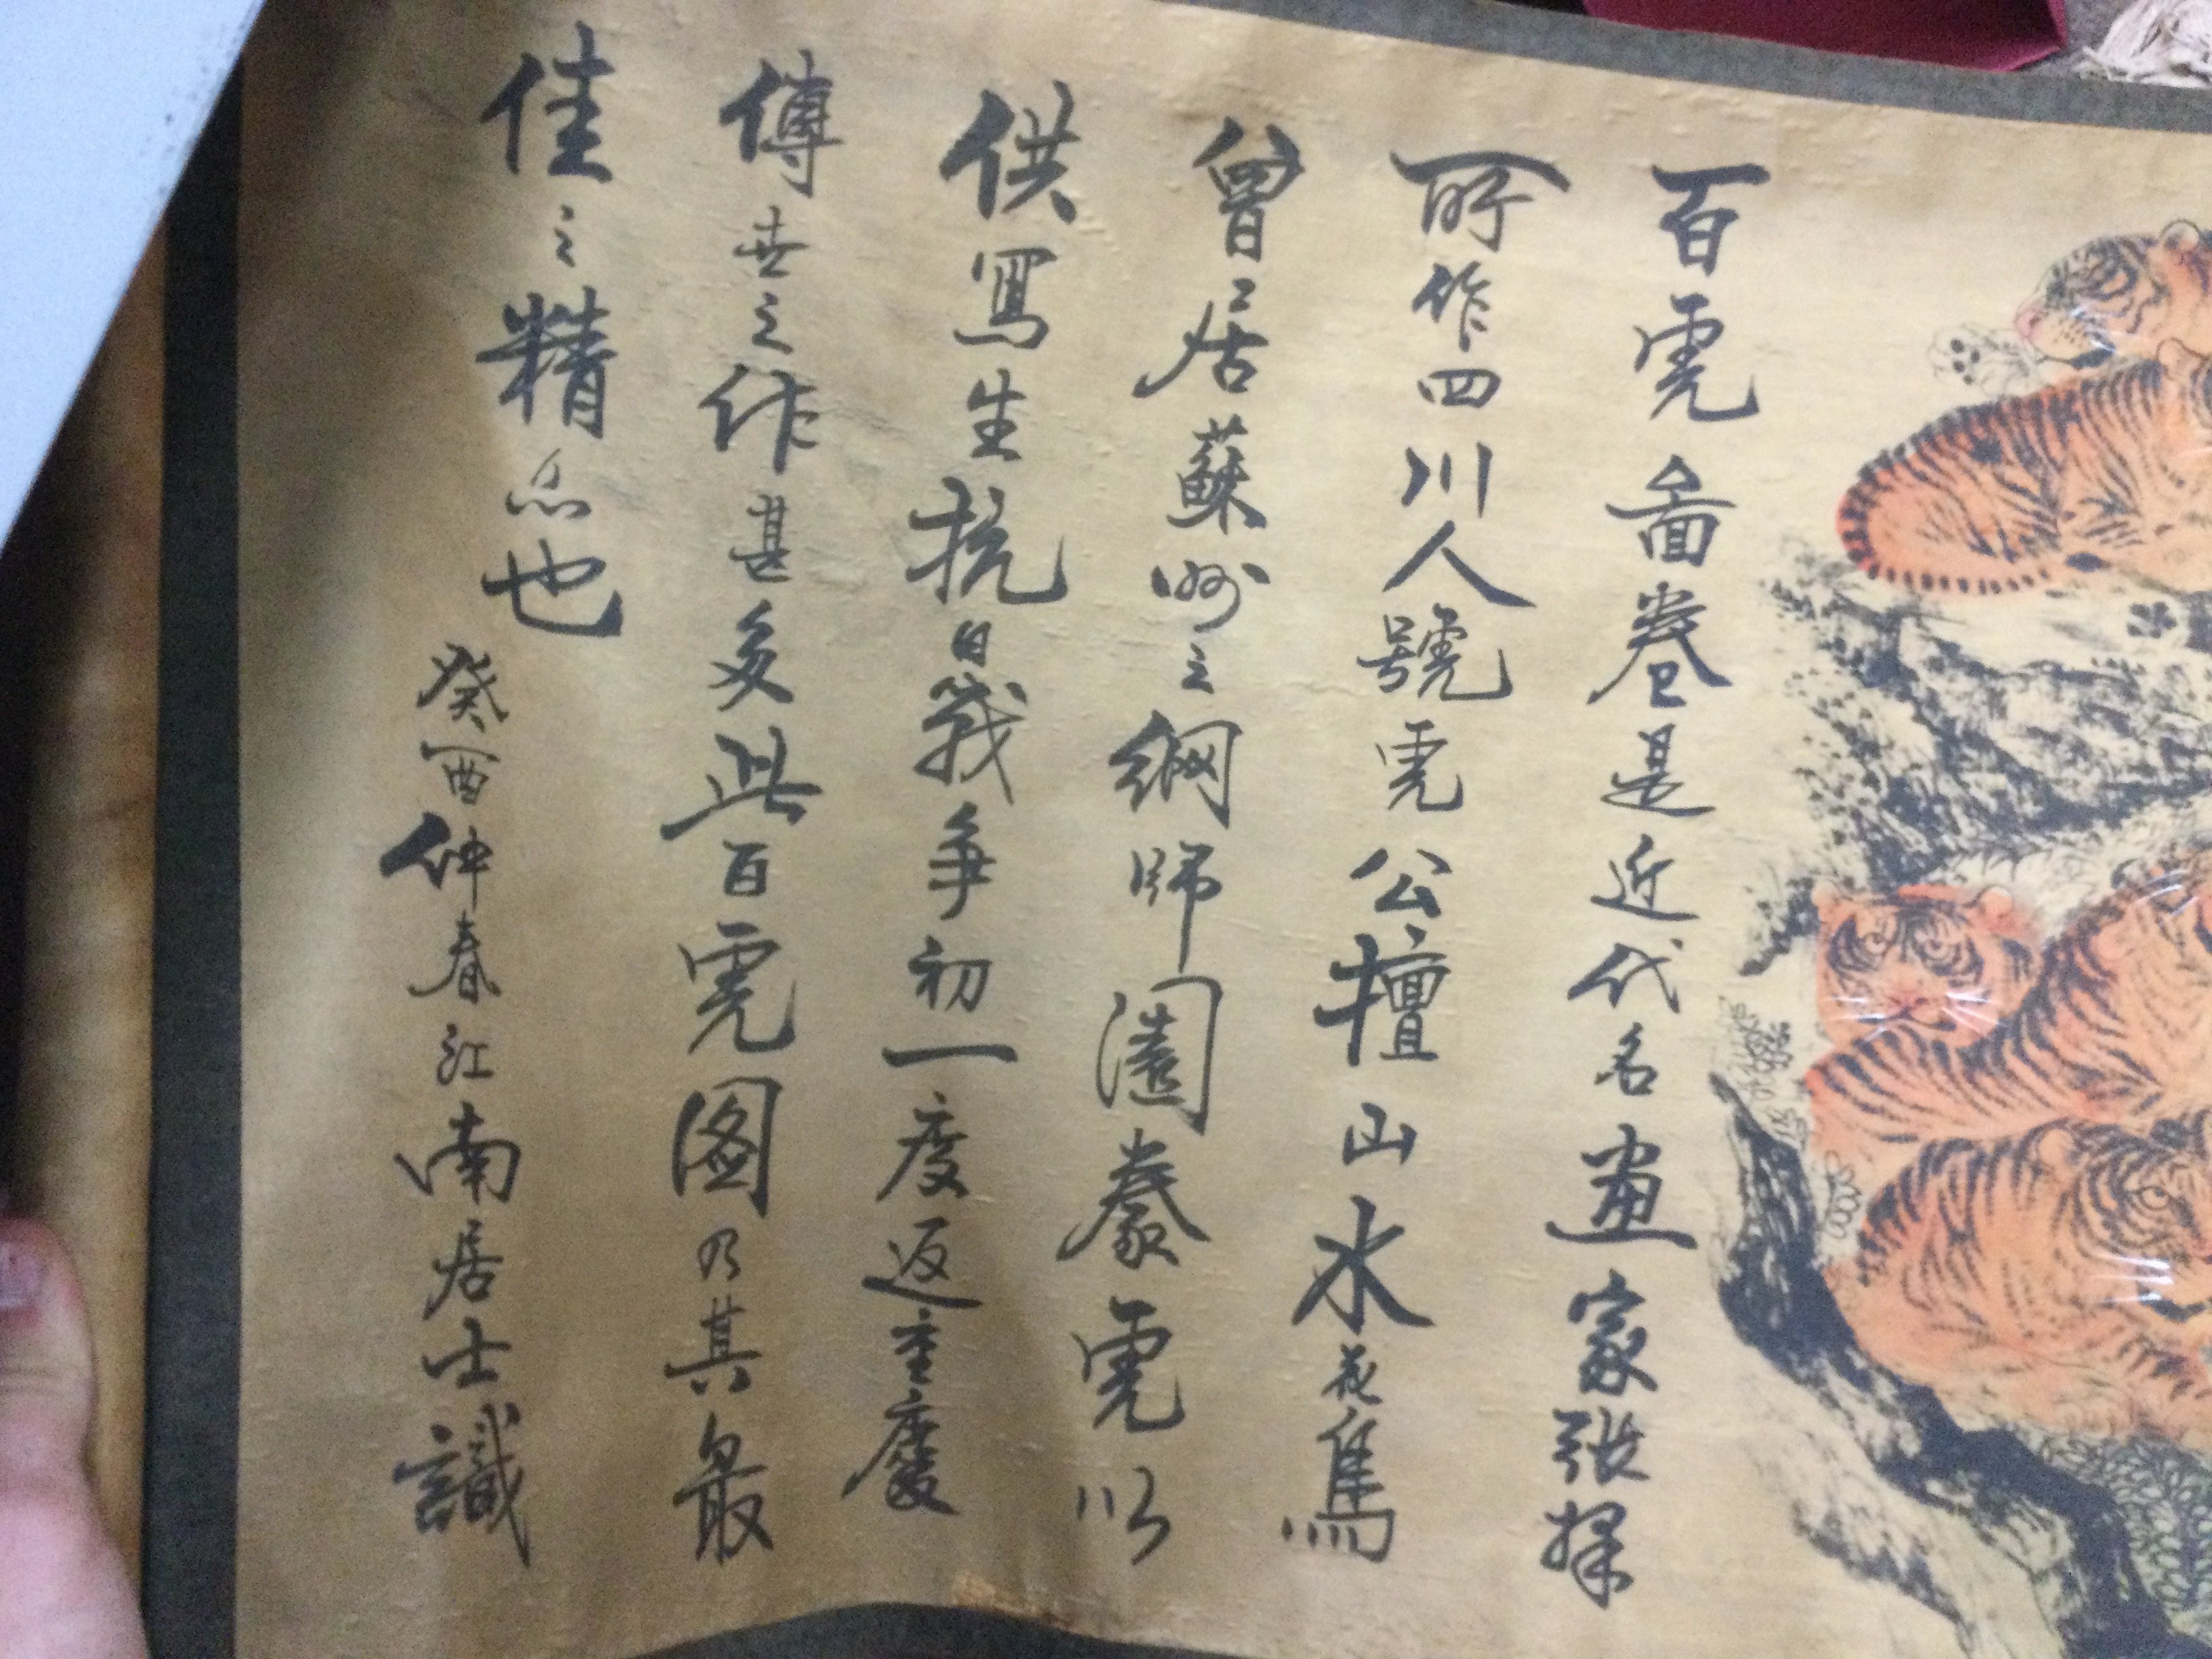 百虎啚卷是近代名畫家張揉
所作四川人號虎公擅山水花鳥
曾居蘇州之網師園養虎以
供寫生抗日戰爭初一度返重慶
傳世之作甚多此百虎图乃其最
佳之精品也
癸酉仲春江南居士識